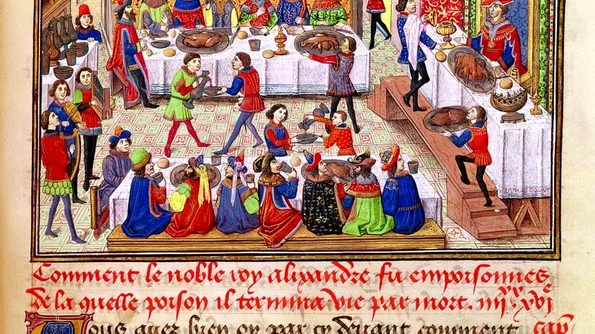 Comment le noble roy alixandre fu empoisonnes
de la quelle poison il termina vie par mort. iiii xx xvi
Vous auez bien oy par cy deuant comment cap